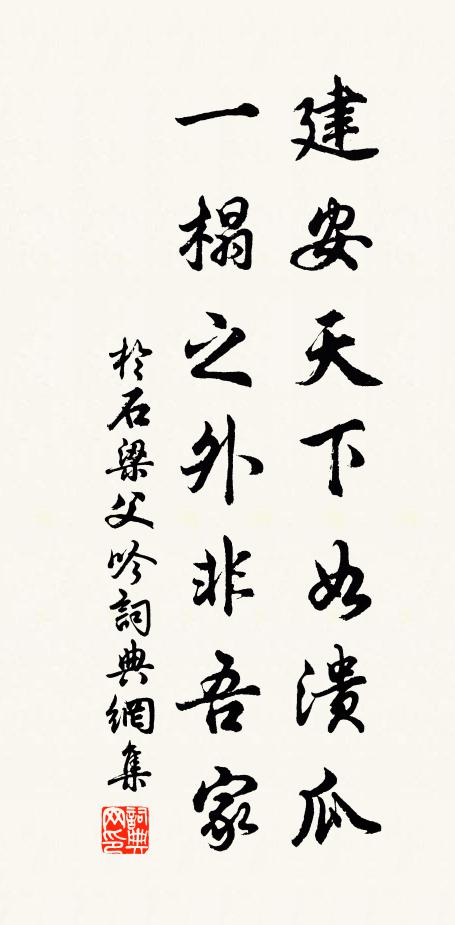 建安天下如潰瓜
一榻之外非吾家
於石梁父吟詞典網集
詞典
网印